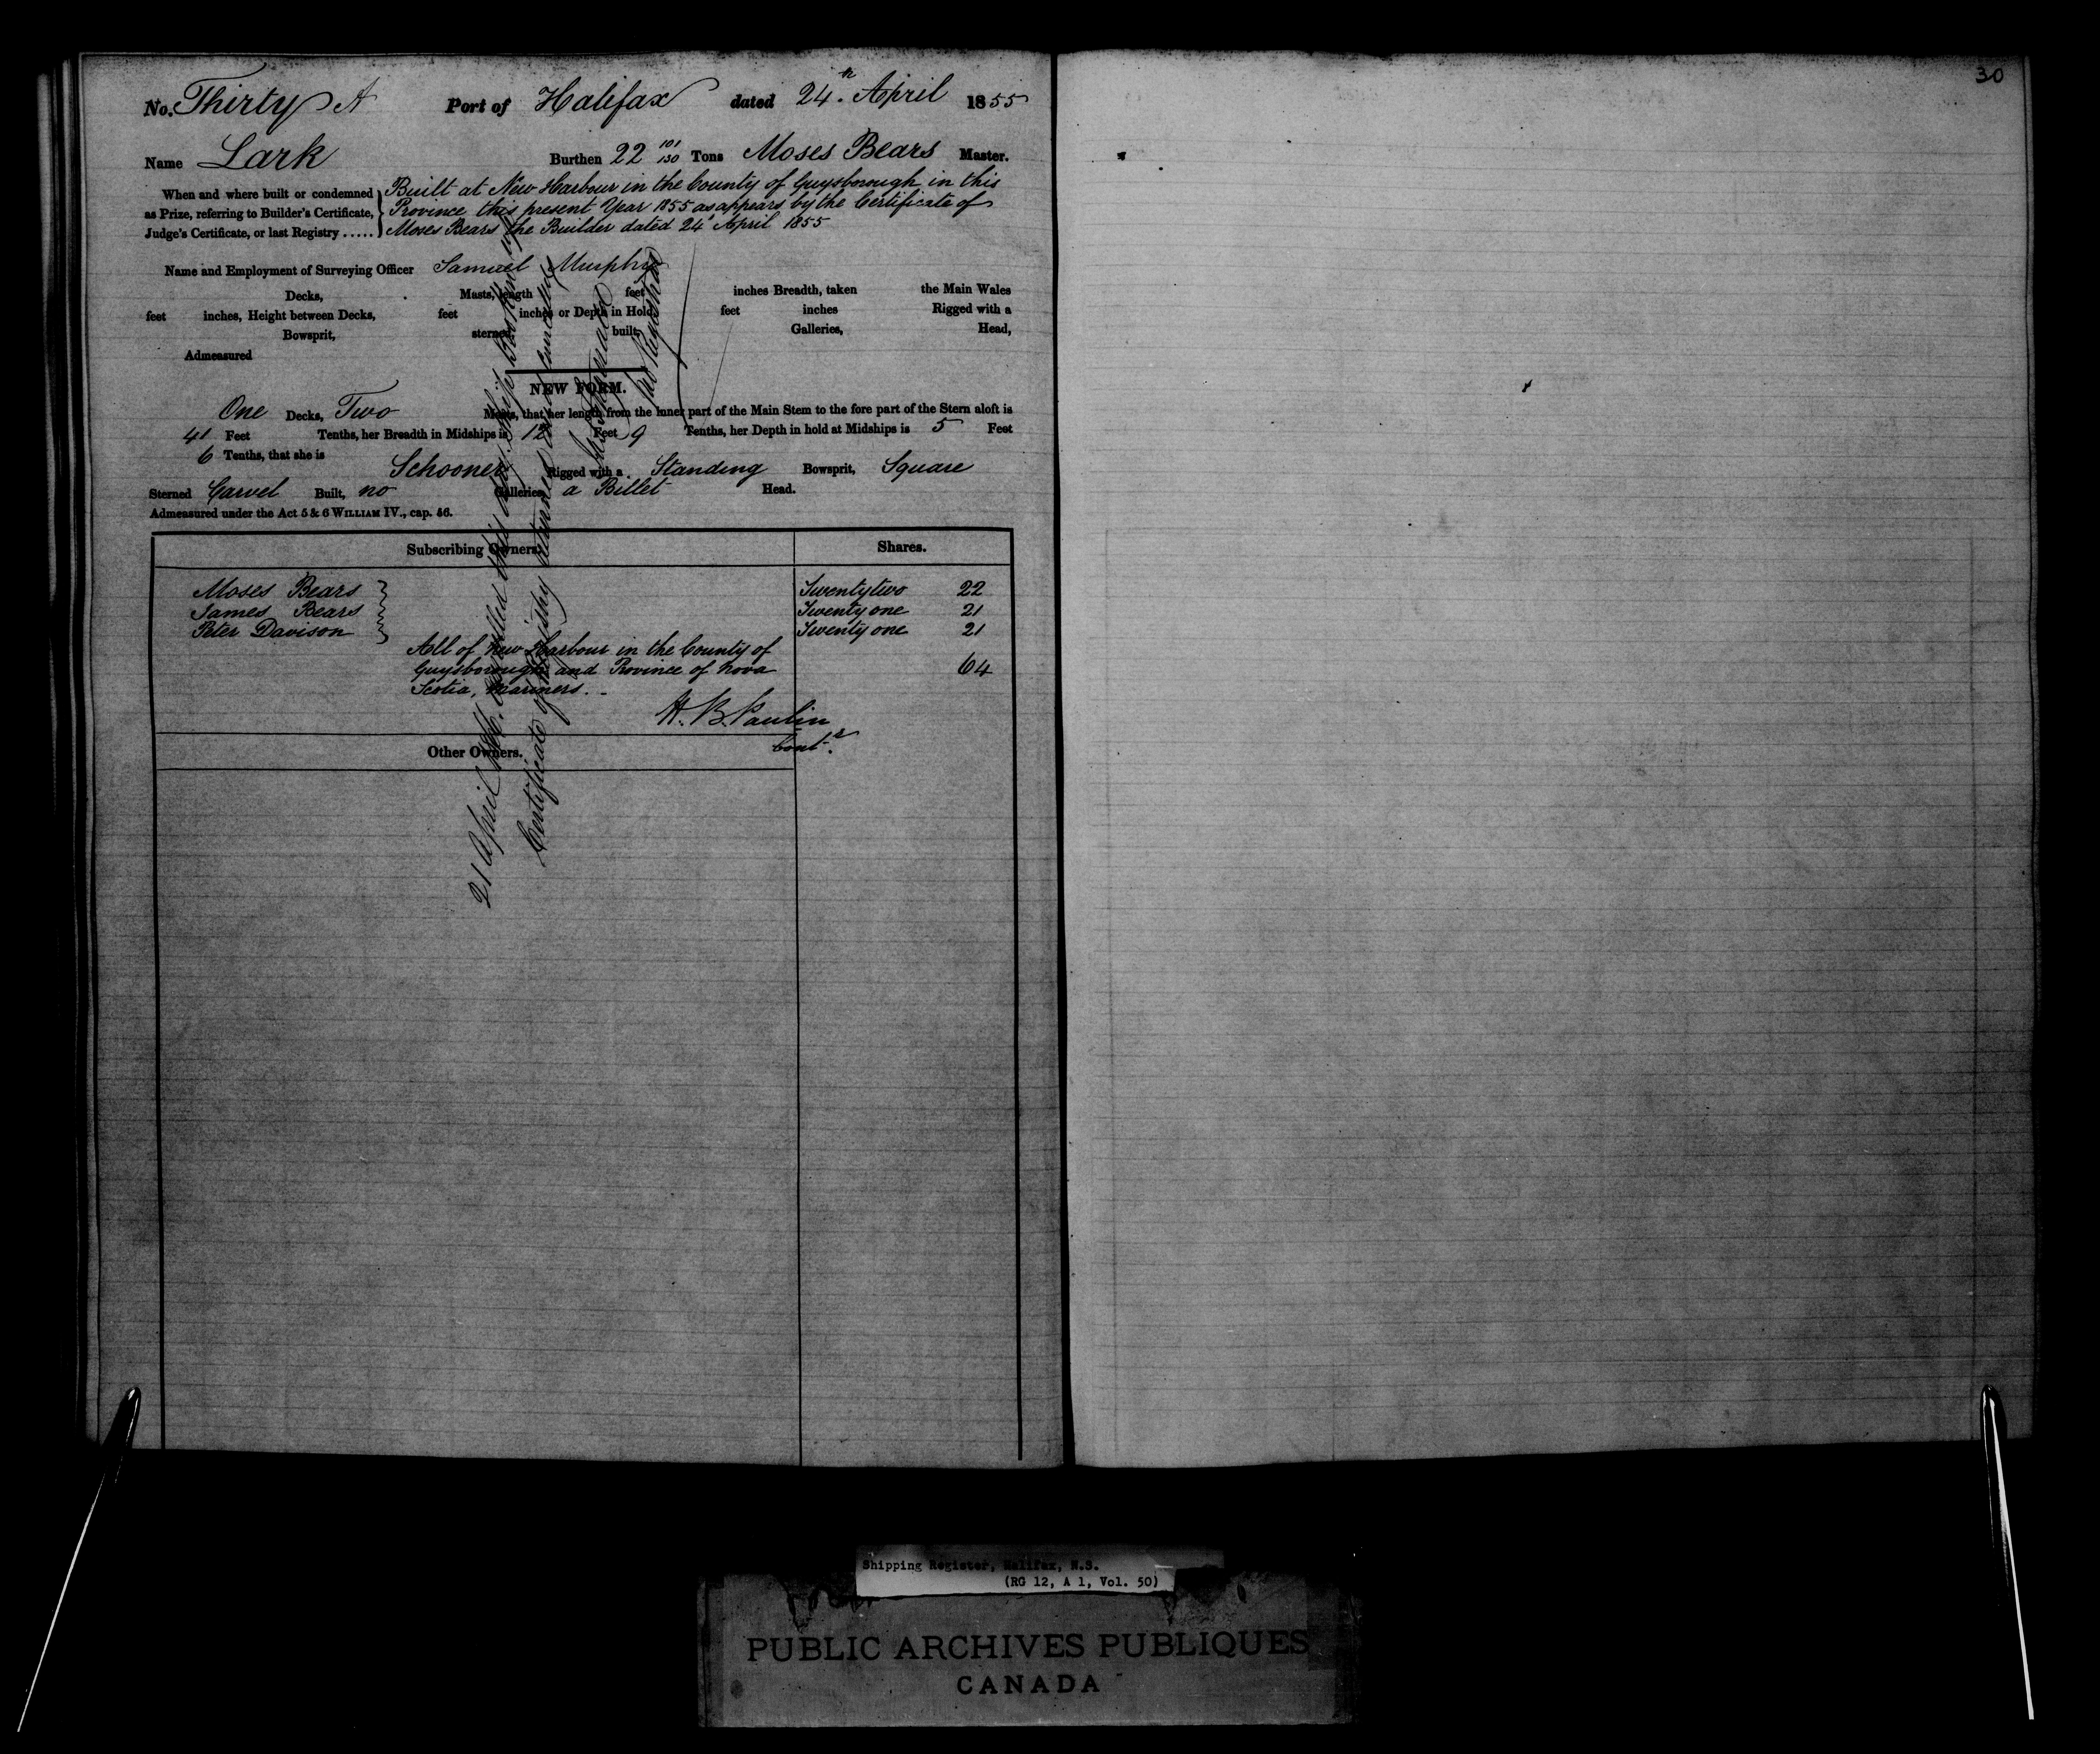 30
No. Thirty A Port of Halifax dated 24.th April 1855
Name Lark Burthen 22 101/130 Tons Moses Bears Master.
When and where built or condemned as Prize, referring to Builder's Certificate, Judge's Certificate, or last Registry .....
Built at New Harbour in the County of Guysborough in this
Province this present Year 1855 as appears by the Certificate of
Moses Bears the Builder dated 24th April 1855
Name and Employment of Surveying Officer Samuel Murphy
Decks, Masts, length feet inches Breadth, taken the Main Wales
feet inches, Height between Decks, feet inches or Depth in Hold feet inches Rigged with a
Bowsprit, sterned built, Galleries, Head,
Admeasured
NEW FORM.
One Decks, Two Masts, that her length from the inner part of the Main Stem to the fore part of the Stern aloft is
41 Feet Tenths, her Breadth in Midships is 12 Feet 9 Tenths, her Depth in hold at Midships is 5 Feet
6 Tenths, that she is
Schooner Rigged with a Standing Bowsprit, Square
Sterned Carvel Built, no Galleries, a Billet Head.
Admeasured under the Act 5 & 6 WILLIAM IV., cap. 56.
Subscribing Owners. Shares.
Moses Bears Twenty two 22
James Bears Twenty one 21
Peter Davison Twenty one 21
All of New Harbour in the County of
Guysborough and Province of Nova 64
Scotia, Mariners. -
H. B. Paulin
Contr.
Other Owners.
21 April this Ship Broken up
Certificate of Registry
Registrar
Shipping Register, Halifax, N.S.
(RG 12, A 1, Vol. 50)
PUBLIC ARCHIVES PUBLIQUES
CANADA